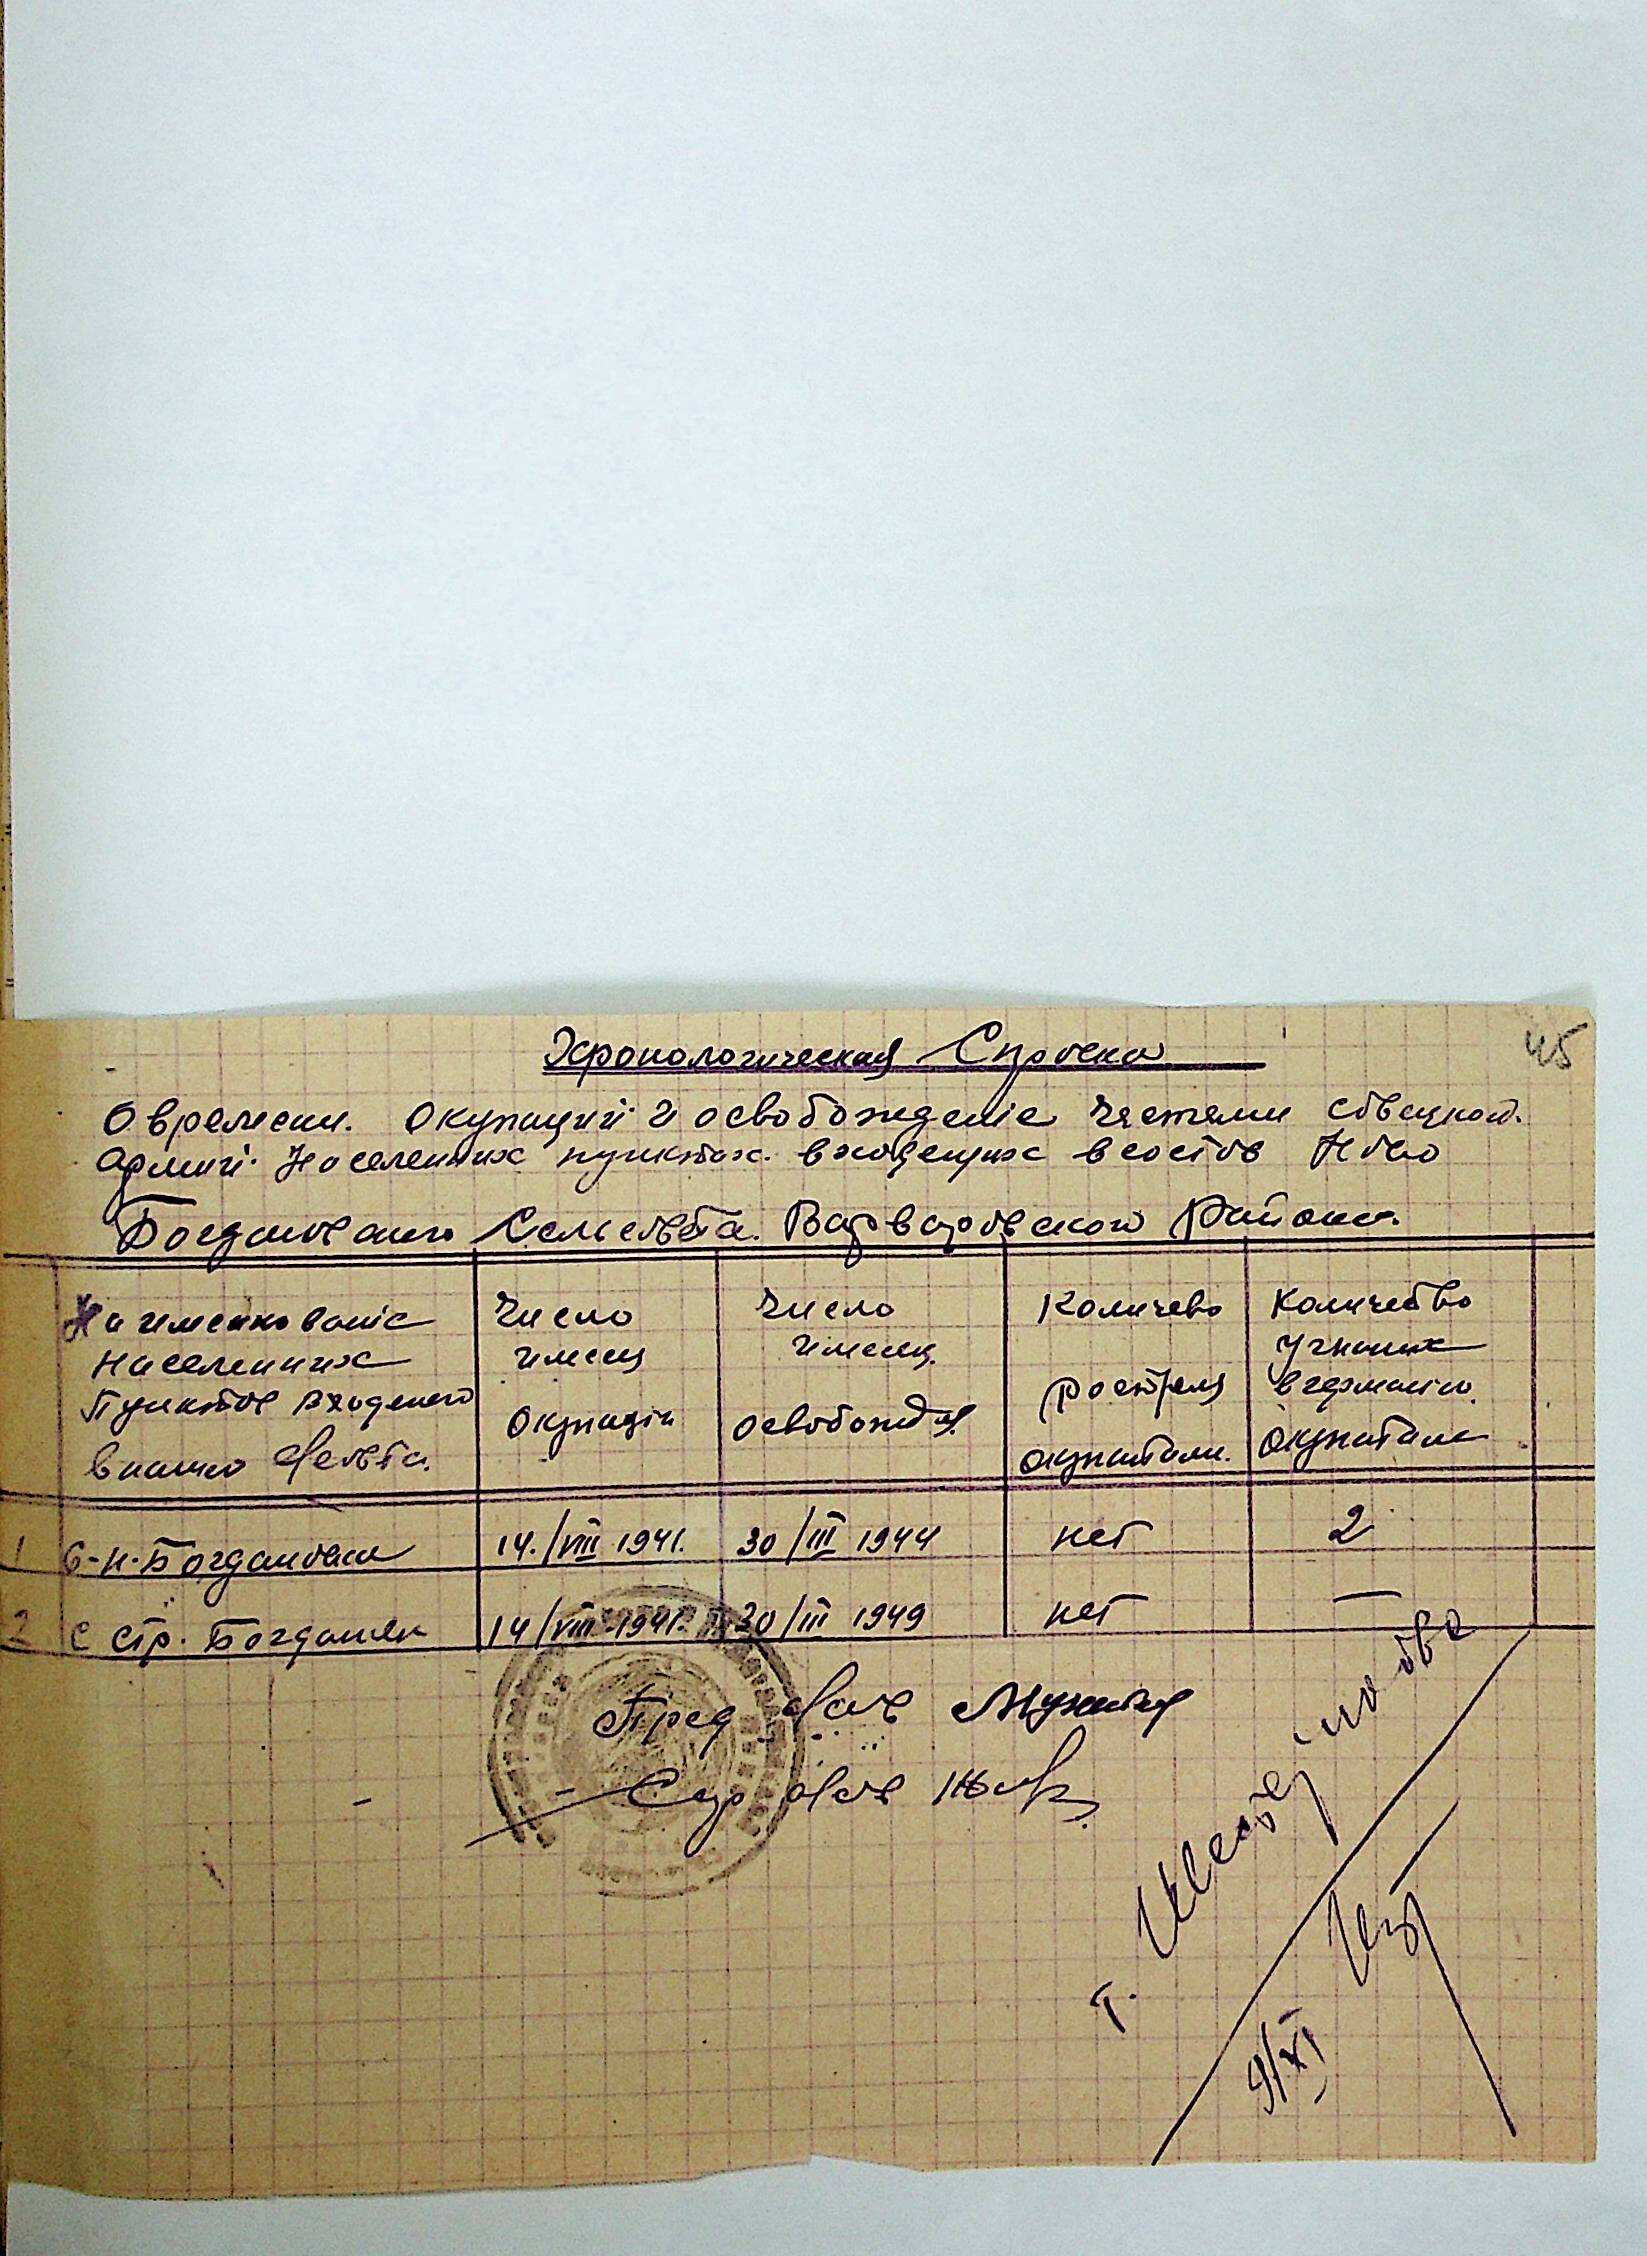 45
Хронологическая Справка
О времени. Окупаций и освобождение частями совецкой.
армий. Населенних пунктах. входещих в состов Ново
Богдановского Сельсовета. Варваровского Района.
Наименование Населенних Пунктов Входещего сельсовета.
Число и месец Окупации
Число и месец. освобождая.
Количево ростреля окупантами.
Количество угнаних в германию. окупантами
1 С-Н-Богдановка 14./VIII 1941. 30/III 1944 нет 2
2 с Стр. Богдановк 14/VIII-1941. 30/III 1949 нет —
Пред
Секр
т.
9/XI